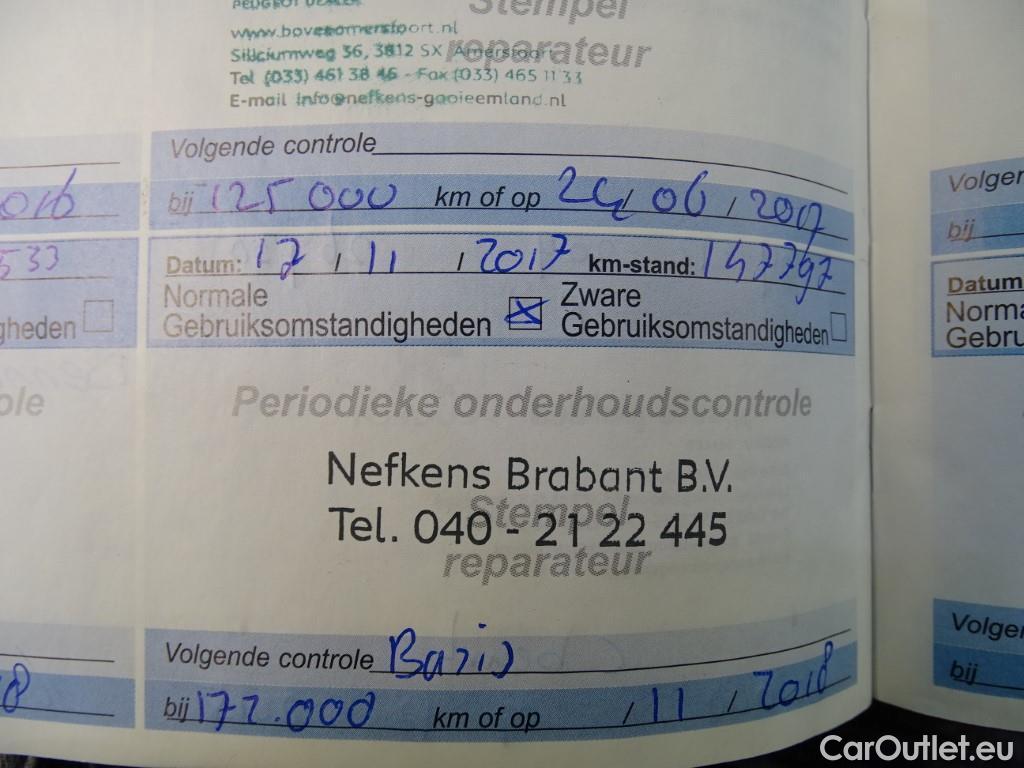 PEUGEOT DEALER
Stempel
www.bovesomersfoort.nl
reparateur
Siliciumweg 36, 3812 SX Amersfoort
Tel (033) 461 38 46 - Fax (033) 465 11 33
E-mail info@nefkens-gooieemland.nl
Volgende controle
bij 125 000 km of op 24/06/2017
Datum: 17/11/2017 km-stand: 147797
Normale
Gebruiksomstandigheden
Zware
Gebruiksomstandigheden
Periodieke onderhoudscontrole
Nefkens Brabant B.V.
Stempel
Tel. 040 - 21 22 445
reparateur
Volgende controle Basis
bij 172.000 km of op / 11 / 2018
016
533
gheden
ole
8
Volger
bij
Datum
Norma
Gebru
Volger
bij
CarOutlet.eu